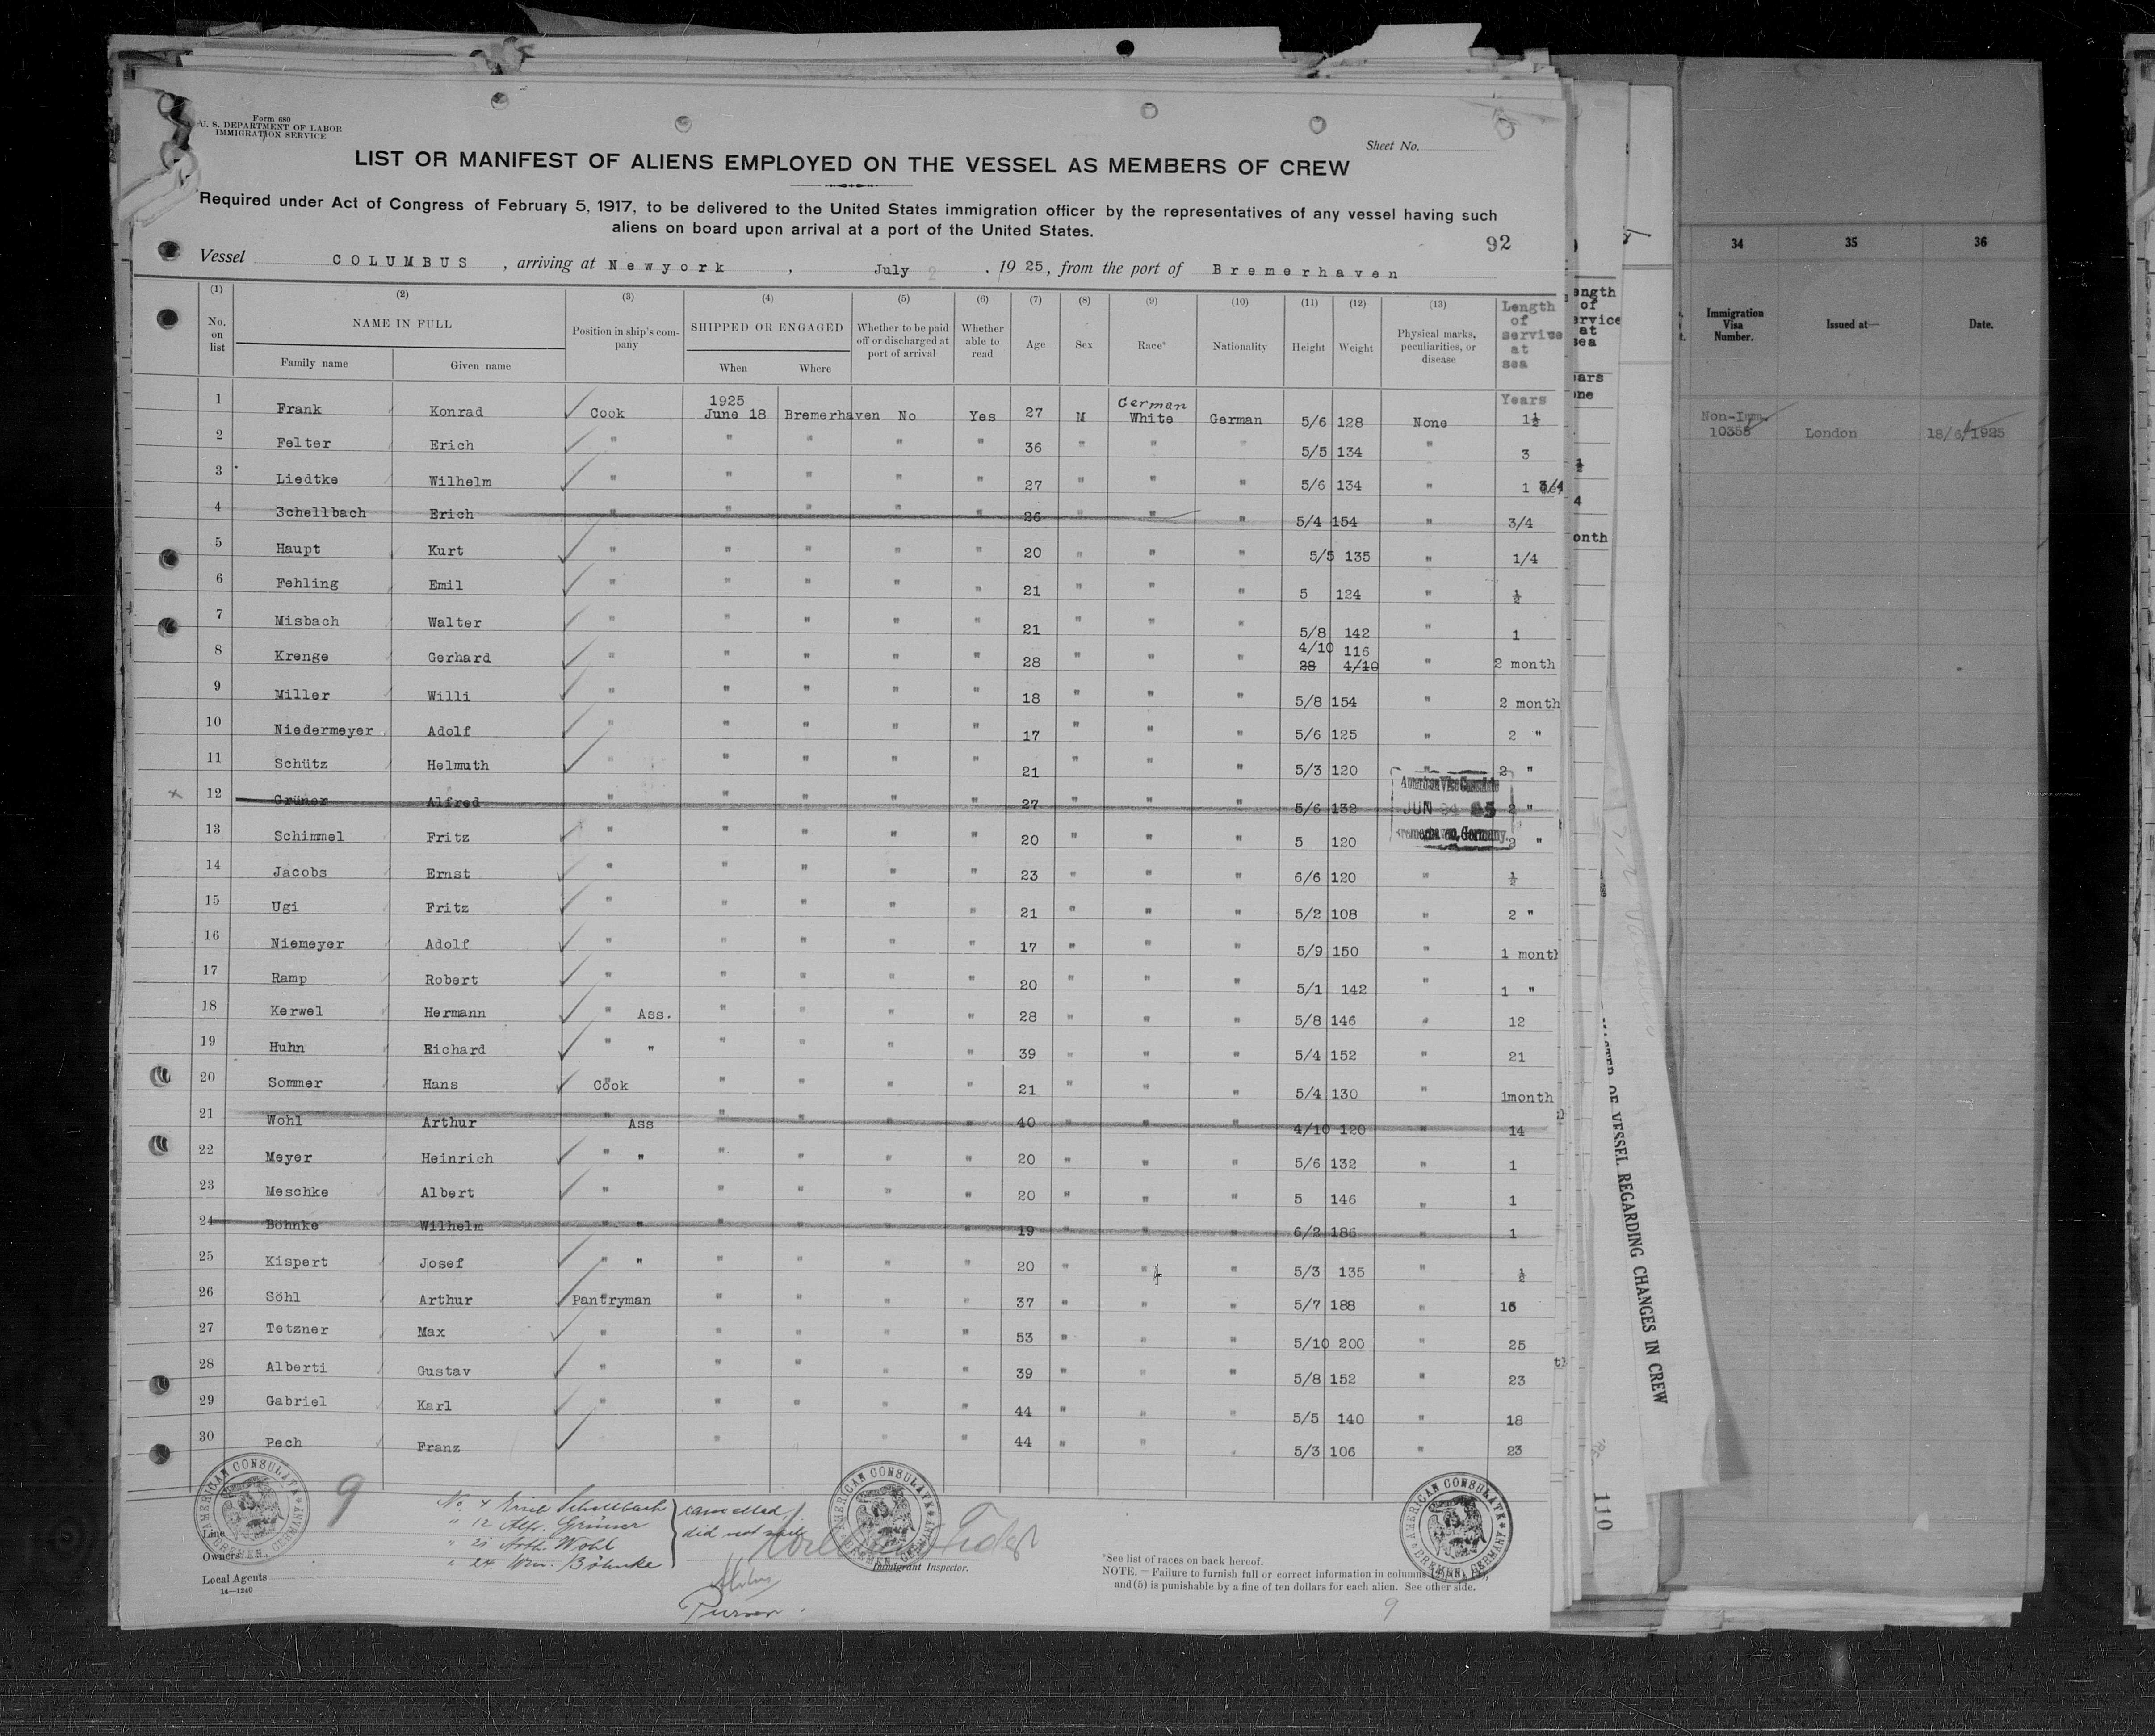 Form 680
U. S. DEPARTMENT OF LABOR
IMMIGRATION SERVICE
Sheet No.
LIST OR MANIFEST OF ALIENS EMPLOYED ON THE VESSEL AS MEMBERS OF CREW
Required under Act of Congress of February 5, 1917, to be delivered to the United States immigration officer by the representatives of any vessel having such
aliens on board upon arrival at a port of the United States.
92
Vessel COLUMBUS, arriving at Newyork, July 2, 1925, from the port of Bremerhaven
(1) (2) (3) (4) (5) (6) (7) (8) (9) (10) (11) (12) (13)
No. on list
NAME IN FULL
Family name Given name
Position in ship's company
SHIPPED OR ENGAGED
When Where
Whether to be paid off or discharged at port of arrival
Whether able to read
Age
Sex
Race*
Nationality
Height
Weight
Physical marks, peculiarities, or disease
Length of service at sea
Years
1 Frank Konrad Cook 1925 June 18 Bremerhaven No Yes 27 M German White German 5/6 128 None 1½
2 Felter Erich " " " " " 36 " " " 5/5 134 " 3
3 Liedtke Wilhelm " " " " " 27 " " " 5/6 134 " 1 3/4
4 Schellbach Erich " " " " " 26 " " " 5/4 154 " 3/4
5 Haupt Kurt " " " " " 20 " " " 5/5 135 " 1/4
6 Fehling Emil " " " " " 21 " " " 5 124 " ½
7 Misbach Walter " " " " " 21 " " " 5/8 142 " 1
8 Krenge Gerhard " " " " " 28 " " " 4/10 116 28 4/10 " 2 month
9 Miller Willi " " " " " 18 " " " 5/8 154 " 2 month
10 Niedermeyer Adolf " " " " " 17 " " " 5/6 125 " 2 "
11 Schütz Helmuth " " " " " 21 " " " 5/3 120 " 2 "
12 Grüner Alfred " " " " " 27 " " " 5/6 132 2 "
13 Schimmel Fritz " " " " " 20 " " " 5 120 "
14 Jacobs Ernst " " " " " 23 " " " 6/6 120 " ½
15 Ugi Fritz " " " " " 21 " " " 5/2 108 " 2 "
16 Niemeyer Adolf " " " " " 17 " " " 5/9 150 " 1 month
17 Ramp Robert " " " " " 20 " " " 5/1 142 " 1 "
18 Kerwel Hermann " Ass. " " " " 28 " " " 5/8 146 " 12
19 Huhn Richard " " " " " " 39 " " " 5/4 152 " 21
20 Sommer Hans Cook " " " " 21 " " " 5/4 130 " 1month
21 Wohl Arthur " Ass " " " " 40 " " " 4/10 120 " 14
22 Meyer Heinrich " " " " " " 20 " " " 5/6 132 " 1
23 Meschke Albert " " " " " 20 " " " 5 146 " 1
24 Böhnke Wilhelm " " " " " " 19 " " " 6/2 186 " 1
25 Kispert Josef " " " " " " 20 " " " 5/3 135 " ½
26 Söhl Arthur Pantryman " " " " 37 " " " 5/7 188 " 16
27 Tetzner Max " " " " " 53 " " " 5/10 200 " 25
28 Alberti Gustav " " " " " 39 " " " 5/8 152 " 23
29 Gabriel Karl " " " " " 44 " " " 5/5 140 " 18
30 Pech Franz " " " 44 " " " 5/3 106 " 23
American Vice Consulate
JUN 24 25
Bremerhaven, Germany
AMERICAN CONSULATE BREMEN, GERMANY
AMERICAN CONSULATE BREMEN, GERMANY
AMERICAN CONSULATE BREMEN, GERMANY
9
No. 4 Erich Schellbach
" 12 Alf. Grüner
" 21 Arth. Wohl
" 24 Wm. Böhnke
cancelled
did not sail
Purser.
Line
Owners
Local Agents
14—1240
Immigrant Inspector.
*See list of races on back hereof.
NOTE.—Failure to furnish full or correct information in columns
and (5) is punishable by a fine of ten dollars for each alien. See other side.
9
ength
of
ervice
at
sea
ears
one
½
4
onth
OF VESSEL REGARDING CHANGES IN CREW
110
34 35 36
Immigration Visa Number. Issued at— Date.
Non-Imm. 10358 London 18/6/1925